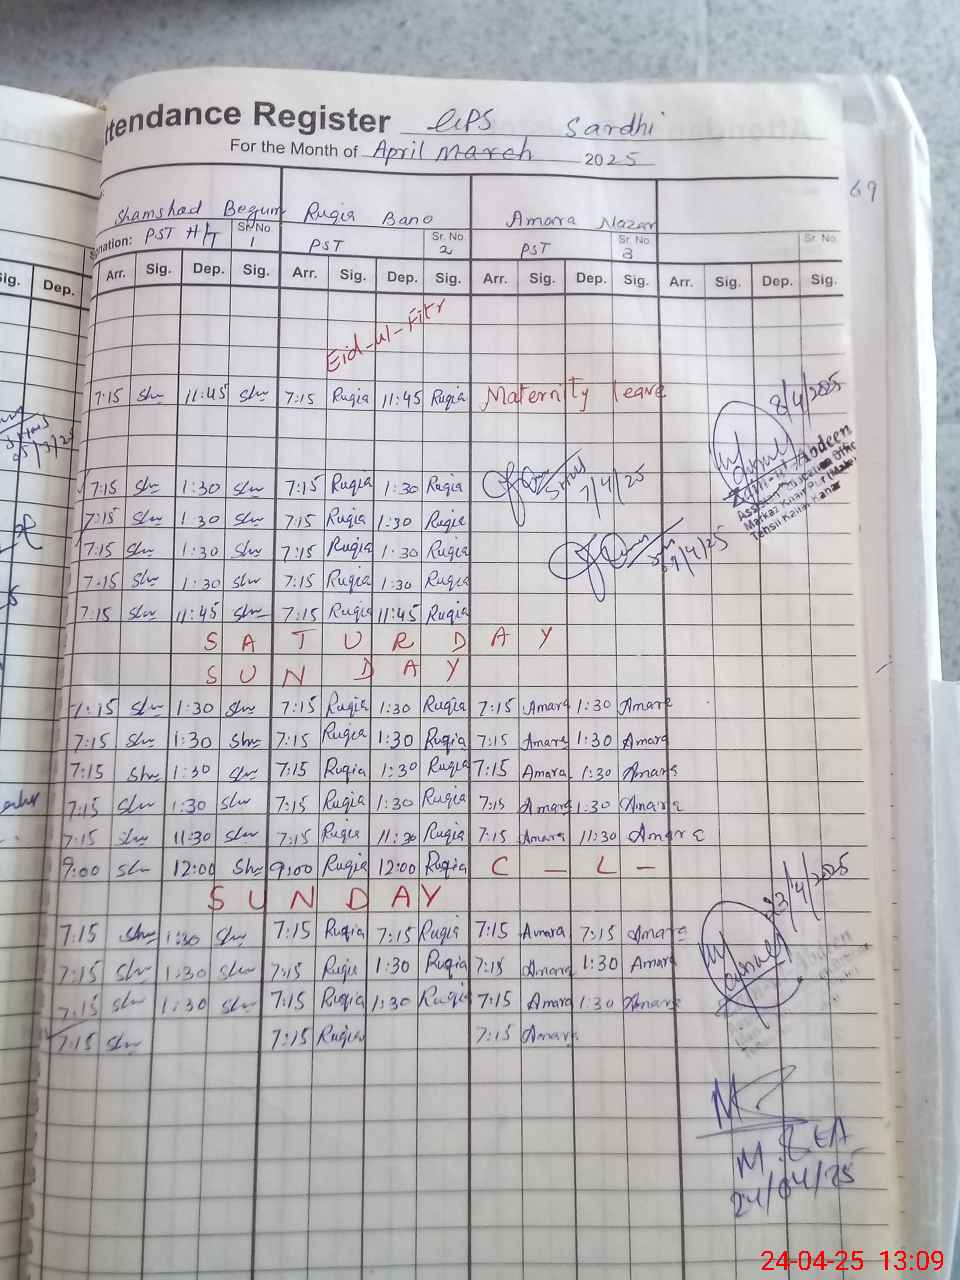 ttendance Register GPS Sardhi
For the Month of April March 2025
69
Shamshad Begum Ruqia Bano Amara Nazar
nation: PST H/T Sr. No. 1 PST Sr. No. 2 PST Sr. No. 3 Sr. No.
Sig. Dep. Arr. Sig. Dep. Sig. Arr. Sig. Dep. Sig. Arr. Sig. Dep. Sig. Arr. Sig. Dep. Sig.
Eid-ul-Fitr
7:15 Shr 11:45 Shr 7:15 Ruqia 11:45 Ruqia Maternity leave
8/4/2025
7:15 Shr 1:30 Shr 7:15 Ruqia 1:30 Ruqia
7/4/25
Abdeen
Tehsil
7:15 Shr 1:30 Shr 7:15 Ruqia 1:30 Ruqia
7:15 Shr 1:30 Shr 7:15 Ruqia 1:30 Ruqia
9/4/25
7:15 Shr 1:30 Shr 7:15 Ruqia 1:30 Ruqia
7:15 Shr 11:45 Shr 7:15 Ruqia 11:45 Ruqia
SATURDAY
SUNDAY
7:15 Shr 1:30 Shr 7:15 Ruqia 1:30 Ruqia 7:15 Amara 1:30 Amara
7:15 Shr 1:30 Shr 7:15 Ruqia 1:30 Ruqia 7:15 Amara 1:30 Amara
7:15 Shr 1:30 Shr 7:15 Ruqia 1:30 Ruqia 7:15 Amara 1:30 Amara
7:15 Shr 1:30 Shr 7:15 Ruqia 1:30 Ruqia 7:15 Amara 1:30 Amara
7:15 Shr 11:30 Shr 7:15 Ruqia 11:30 Ruqia 7:15 Amara 11:30 Amara
9:00 Shr 12:00 Shr 9:00 Ruqia 12:00 Ruqia C – L –
SUNDAY
23/4/2025
7:15 Shr 1:30 Shr 7:15 Ruqia 7:15 Ruqia 7:15 Amara 7:15 Amara
7:15 Shr 1:30 Shr 7:15 Ruqia 1:30 Ruqia 7:15 Amara 1:30 Amara
7:15 Shr 1:30 Shr 7:15 Ruqia 1:30 Ruqia 7:15 Amara 1:30 Amara
7:15 Shr 7:15 Ruqia 7:15 Amara
M.&EA
24/04/25
24-04-25 13:09